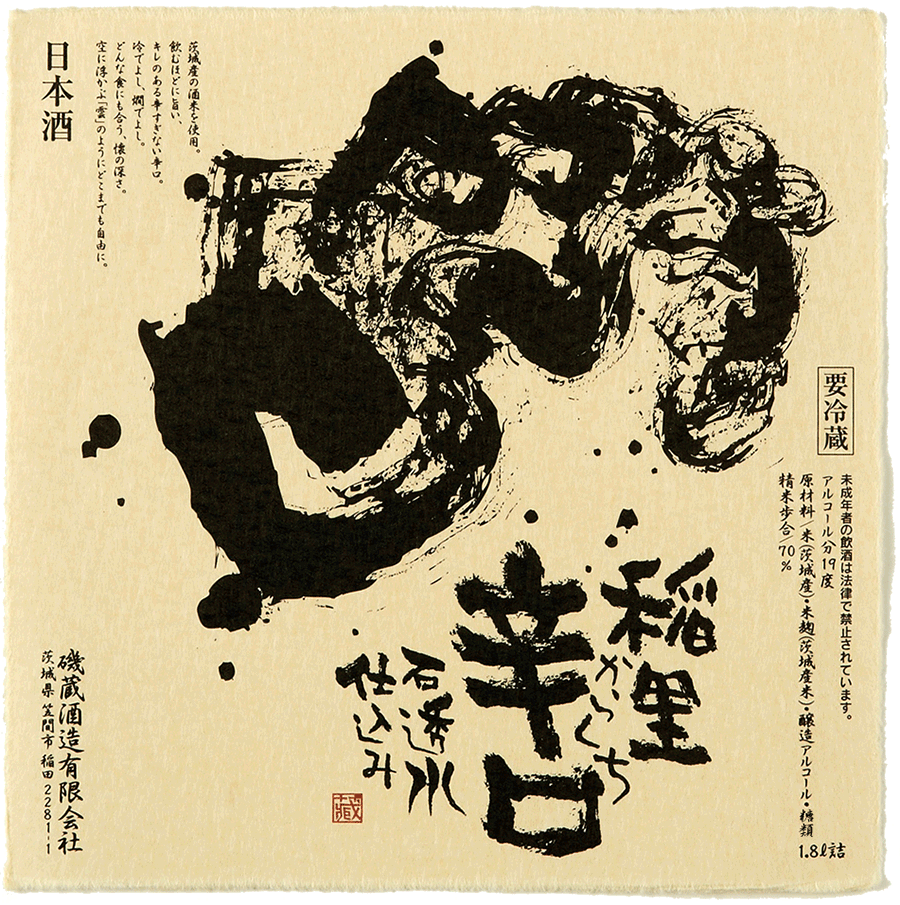 要冷蔵
未成年者の飲酒は法律で禁止されています。
アルコール分19度
原材料/米(茨城産)・米麹(茨城産米)・醸造アルコール・糖類
精米歩合/70%
1.8ℓ詰
稲里
からくち
辛口
石透水
仕込み
茨城産の酒米を使用。
飲むほどに旨い、
キレのある辛すぎない辛口。
冷でよし、燗でよし。
どんな食にも合う、懐の深さ。
空に浮かぶ「雲」のようにどこまでも自由に。
日本酒
磯蔵酒造有限会社
茨城県笠間市稲田2281-1